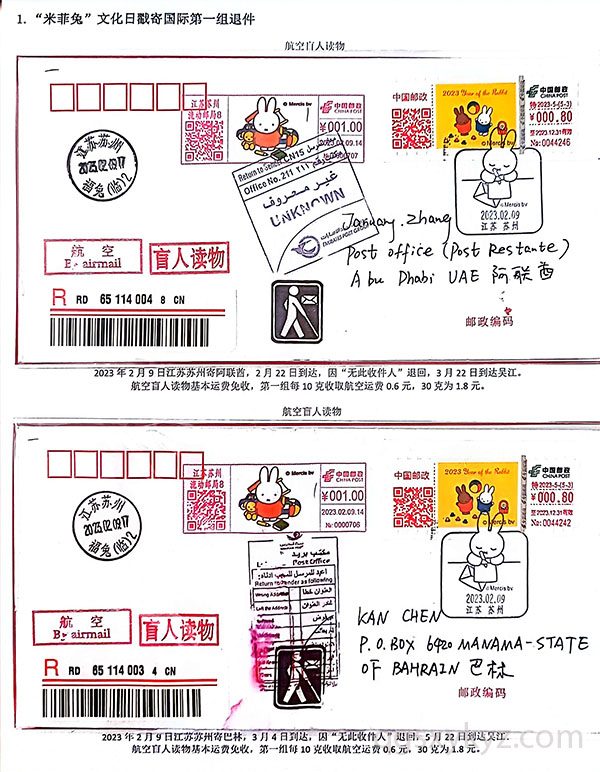 1. “米菲兔”文化日戳寄国际第一组退件
航空盲人读物
江苏苏州
流动邮局8
© Mercis bv
中国邮政
CHINA POST
¥001.00
2023.02.09.14
№ 0000707
中国邮政
2023 Year of the Rabbit
© Mercis bv
中国邮政
CHINA POST
特2023-5-(5-3)
¥000.80
2023.12.31有效
№: 0044246
江苏苏州
2023.02.09.17
福兔(临)2
Return to Sender CN15
Office No. 211
غير معروف
UNKNOWN
EMIRATES POST GROUP
© Mercis bv
2023.02.09
江苏 苏州
January.zhang
Post office (Post Restante)
Abu Dhabi UAE 阿联酋
航空
By airmail
盲人读物
R RD 65 114 004 8 CN
邮政编码
2023 年 2 月 9 日江苏苏州寄阿联酋，2 月 22 日到达，因“无此收件人”退回，3 月 22 日到达吴江。
航空盲人读物基本运费免收，第一组每 10 克收取航空运费 0.6 元，30 克为 1.8 元。
航空盲人读物
江苏苏州
流动邮局8
© Mercis bv
中国邮政
CHINA POST
¥001.00
2023.02.09.14
№ 0000706
中国邮政
2023 Year of the Rabbit
© Mercis bv
中国邮政
CHINA POST
特2023-5-(5-3)
¥000.80
2023.12.31有效
№: 0044242
江苏苏州
2023.02.09.17
福兔(临)2
مكتب بريد
Post Office
Return to sender as following
العنوان خطأ
Wrong Address
Left the Address
© Mercis bv
2023.02.09
江苏 苏州
KAN CHEN
P.O.BOX 6420 MANAMA-STATE
OF BAHRAIN 巴林
航空
By airmail
盲人读物
R RD 65 114 003 4 CN
邮政编码
2023 年 2 月 9 日江苏苏州寄巴林，3 月 4 日到达，因“无此收件人”退回，5 月 22 日到达吴江.
航空盲人读物基本运费免收，第一组每 10 克收取航空运费 0.6 元，30 克为 1.8 元。